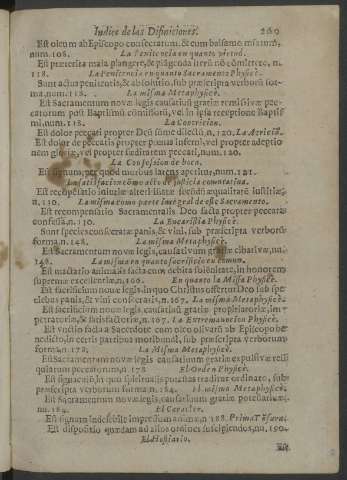 Indice de las Difiniciones. 260
Est oleum ab Episcopo consecratum, & cum balsamo mixtum,
num. 108. La Penitencia en quanto virtud.
Est præterita mala plangere, & plagenda iterũ nõ cõmitere, n.
118. La Penitencia en quanto Sacramento Physicè.
Sunt actus penitentis, & absolutio, sub præscripta verborũ for-
ma, num. 118. La misma Metaphysicè.
Est Sacramentum novæ legis causativũ gratiæ remissivæ pec-
catorum post Baptismũ commissorũ, vel in ipsa receptione Baptis
mi, num. 118. La Contricion.
Est dolor peccati propter Deũ summe dilectũ, n. 120. La Atricio.
Est dolor de peccatis propter pœnas inferni, vel propter adeptio
nem gloriæ, vel propter fæditatem peccati, num. 120.
La Confession de boca.
Est signum, per quod morbus latens aperitur, num. 121.
La satisfaccion como acto de justicia comutativa.
Est recõpensatio iniuriæ alteri illatæ secundũ æqualitatẽ iustitiæ,
n. 130. La misma como parte integral de este Sacramento.
Est recompensatio Sacramentalis Deo facta propter peccata
confessa, n. 130. La Eucaristia Physicè.
Sunt species consecratæ panis, & vini, sub præscripta verborũ
forma, n. 148. La misma Metaphysicè.
Est Sacramentum novæ legis, causativum gratiæ cibativæ, nu.
148. La misma en quanto sacrificio en comun.
Est mactatio animalis facta cum debita solẽnitate, in honorem
supremæ excellentiæ, n. 166. En quanto la Missa Physicè.
Est sacrificium novæ legis in quo Christus offertur Deo sub spe
ciebus panis, & vini consecratis, n. 167. La misma Metaphysicè.
Est sacrificium novæ legis causativum gratiæ propitiatoriæ, im-
petratoriæ, & satisfactoriæ, n. 167. La Extremauncion Physicè.
Est unctio facta a Sacerdote cum oleo olivarũ ab Episcopo be-
nedicto, in certis partibus moribundi, sub præscripta verborum
forma, n. 178. La Misma Metaphysicè.
Est Sacramentum novæ legis causativum gratiæ expulsivæ reli
quiarum peccatorum, n. 178. El Orden Physicè.
Est signaculũ in quo spiritualis potestas traditur ordinato, sub
præscripta verborum forma, n. 184. El mismo Metaphysicè.
Est Sacramentum novæ legis, causativum gratiæ potestativæ,
nu. 184. El Caracter.
Est signum indelebile impressum animæ, n. 188. Prima Tõsura.
Est dispositio quædam ad alios ordines suscipiendos, nu. 190.
El Hostiario.
Est